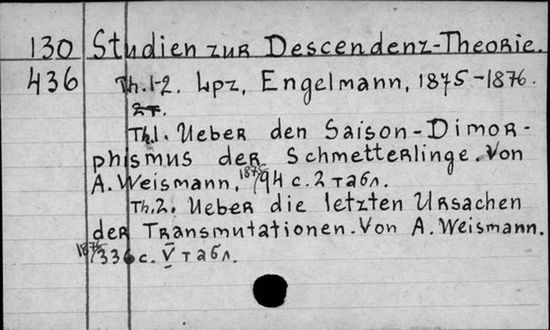 130 Studien zur Descendenz-Theorie.
436 Th.1-2. Lpz, Engelmann, 1875-1876.
2т.
Th.1. Ueber den Saison-Dimor-
phismus der Schmetterlinge. Von
A. Weismann, 1875 94 с. 2 табл.
Th.2. Ueber die letzten Ursachen
der Transmutationen. Von A. Weismann.
1876 336 с. V табл.